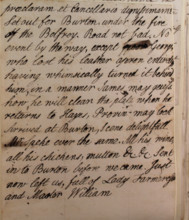 proclaram et cancellara dignissimam
Set out for Burton, under the fire
of the Belfroy. Road not bad. No
event by the way, except Gerry
who lost his coater apron entirely
having whimsically turned it behind
him, in a manner James may guess
how he will clear the plate when he
returns to Hayes. Provin may lost
arrived at Burton, Scene delightfull
Mistake over the same. All his wine
all his chickens, mutton &c &c Sent
in to Burton before we came. Just
now left us, full of Lady
and Master William